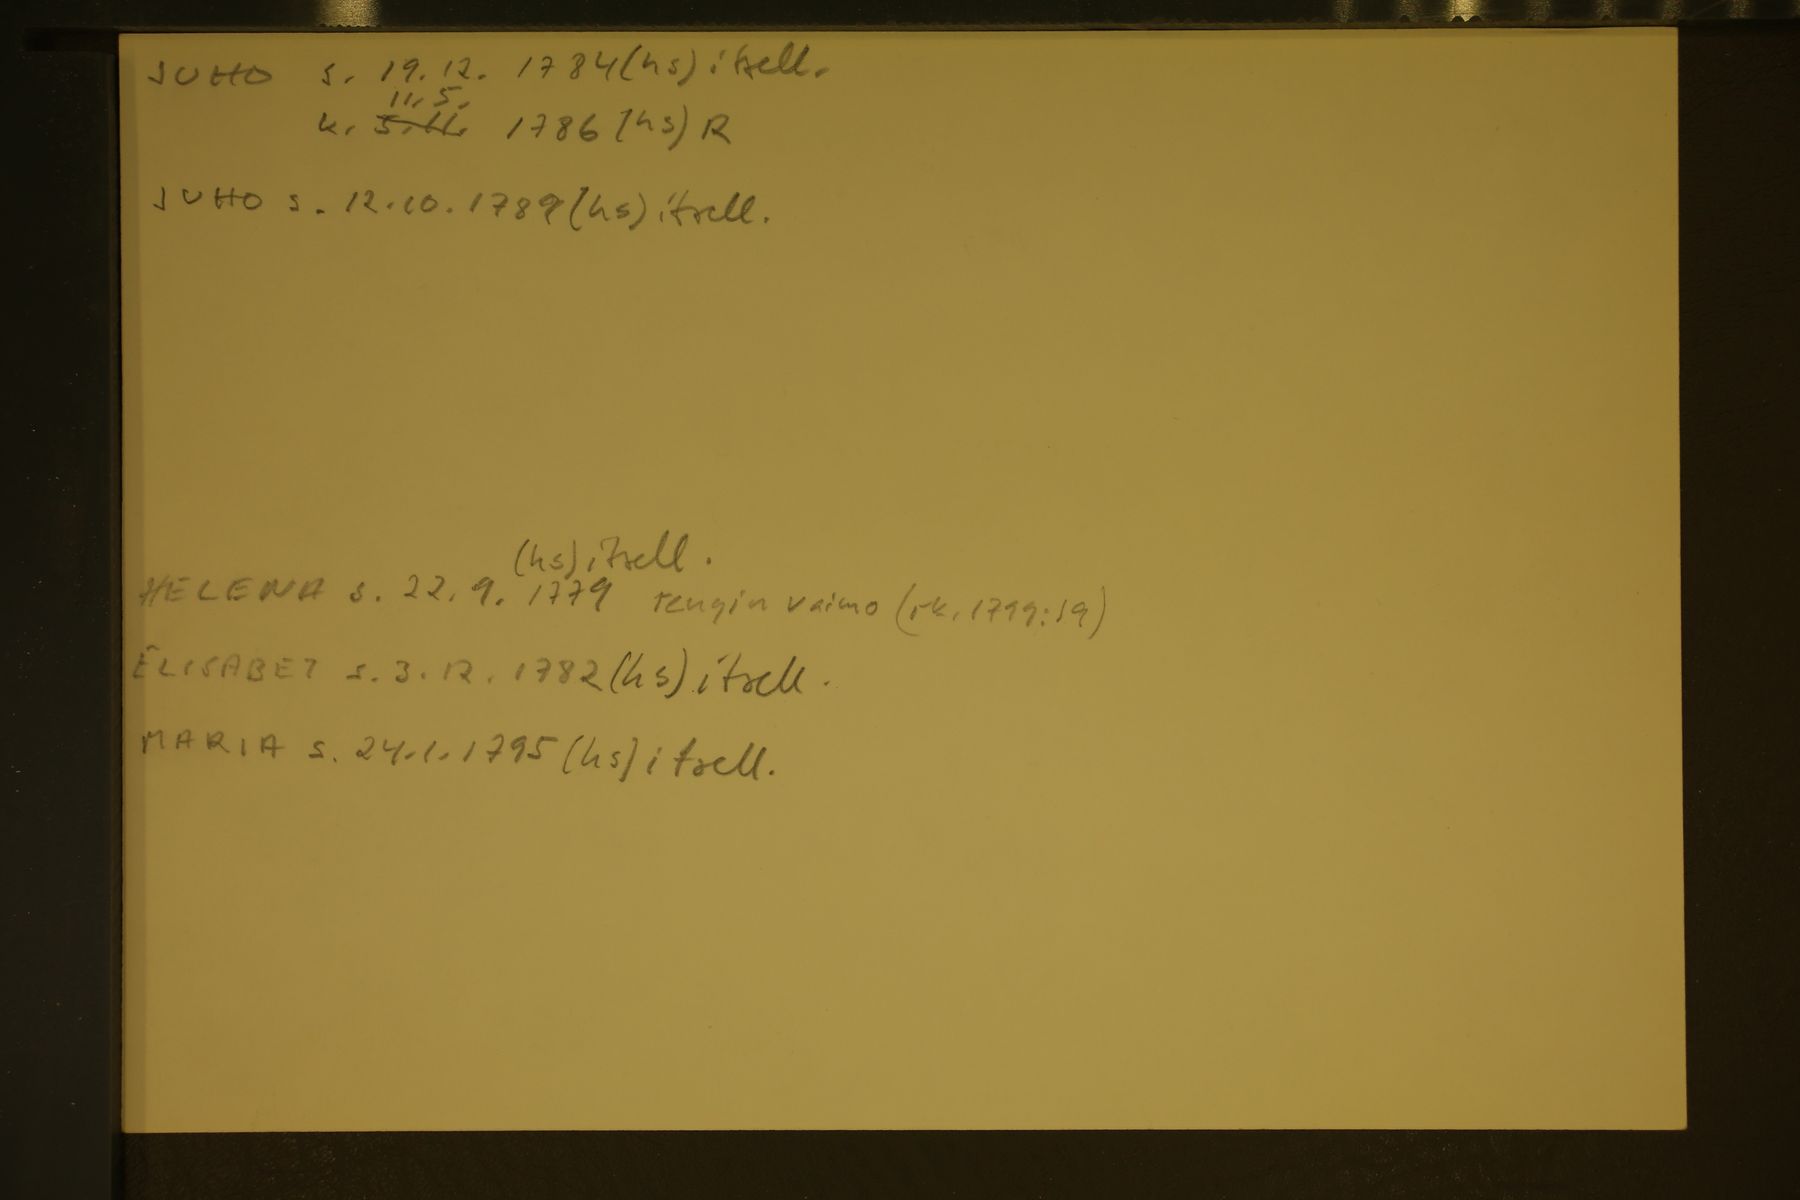 JUHO s. 19.12. 1784 (hs) itsell.
11.5.
k. 5.11. 1786 (hs) R
JUHO s. 12.10. 1789 (hs) itsell.
(hs) itsell.
HELENA s. 22.9. 1779 rengin vaimo (rk. 1799:19)
ELISABET s. 3.12. 1782 (hs) itsell.
MARIA s. 24.1. 1795 (hs) itsell.